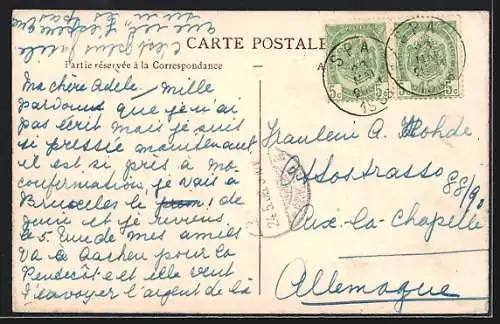 CARTE POSTALE
Partie réservée à la Correspondance
Ma chère Adele. Mille
pardons que je n'ai
pas écrit mais je suis
si pressée maintenant
il est si près à ma
confirmation, je vais à
Bruxelles le 1 de
juin et je reviens
le 5. Une de mes amies
va à Aachen pour la
Pentecôte et elle veut
t'envoyer l'argent de là
c'est pour
SPA
1908
SPA
5c 5c 5c 5c
Fräulein A. Rohde
88/90
Aix-la-Chapelle
Allemagne